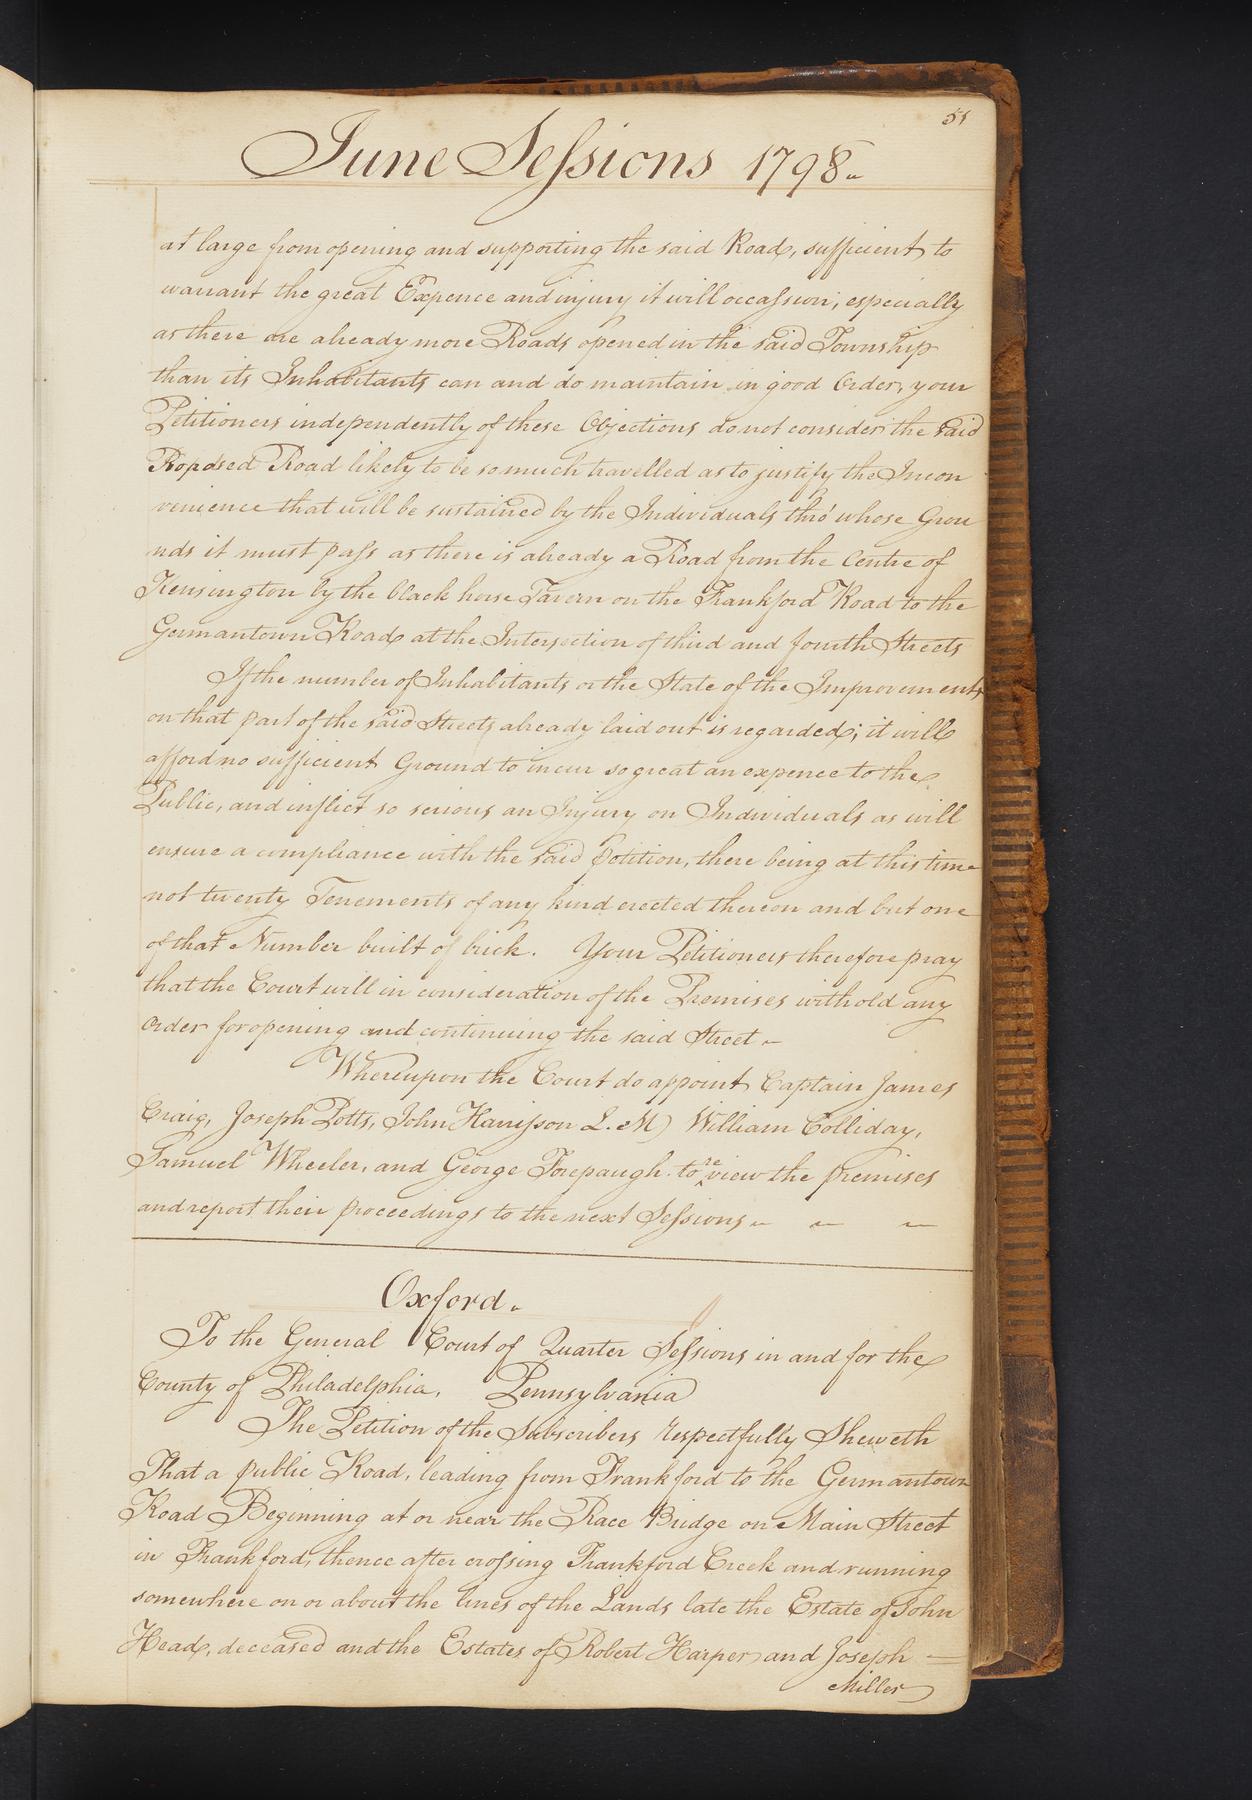 51
June Sessions 1798
at large from opening and supporting the said Road, sufficient to
warrant the great Expence and injury it will occassion; especially
as there are already more Roads opened in the said Township
than its Inhabitants can and do maintain in good Order, your
Petitioners independently of these Objections do not consider the said
Roposed Road likely to be so much travelled as to justify the Incon
venience that will be sustained by the Individuals thro' whose Grou
nds it must pass as there is already a Road from the Centre of
Kensington by the black horse Tavern on the Frankford Road to the
Germantown Road at the Intersection of third and fourth Streets
If the number of Inhabitants or the State of the Improvements
on that part of the said Streets already laid out is regarded; it will
afford no sufficient Ground to incur so great an expence to the
Public, and inflict so serious an Injury on Individuals as will
ensure a compliance with the said petition, there being at this time
not twenty Tenements of any kind erected thereon and but one
of that Number built of brick. Your Petitioners therefore pray
that the Court will in consideration of the Premises withold any
order for opening and continuing the said Street
Whereupon the Court do appoint Captain James
Craig, Joseph Potts, John Harrisson L. M) William Colliday,
Samuel Wheeler, and George Forepaugh to ^re view the premises
and report their proceedings to the next Sessions
Oxford.
To the General Court of Quarter Sessions in and for the
County of Philadelphia, Pennsylvania
The Petition of the Subscribers respectfully Sheweth
That a public Road, leading from Frankford to the Germantown
Road Beginning at or near the Race Bridge on Main Street
in Frankford, thence after crossing Frankford Creek and running
somewhere on or about the lines of the Lands late the Estate of John
Head, deceased and the Estates of Robert Harper and Joseph —
Miller